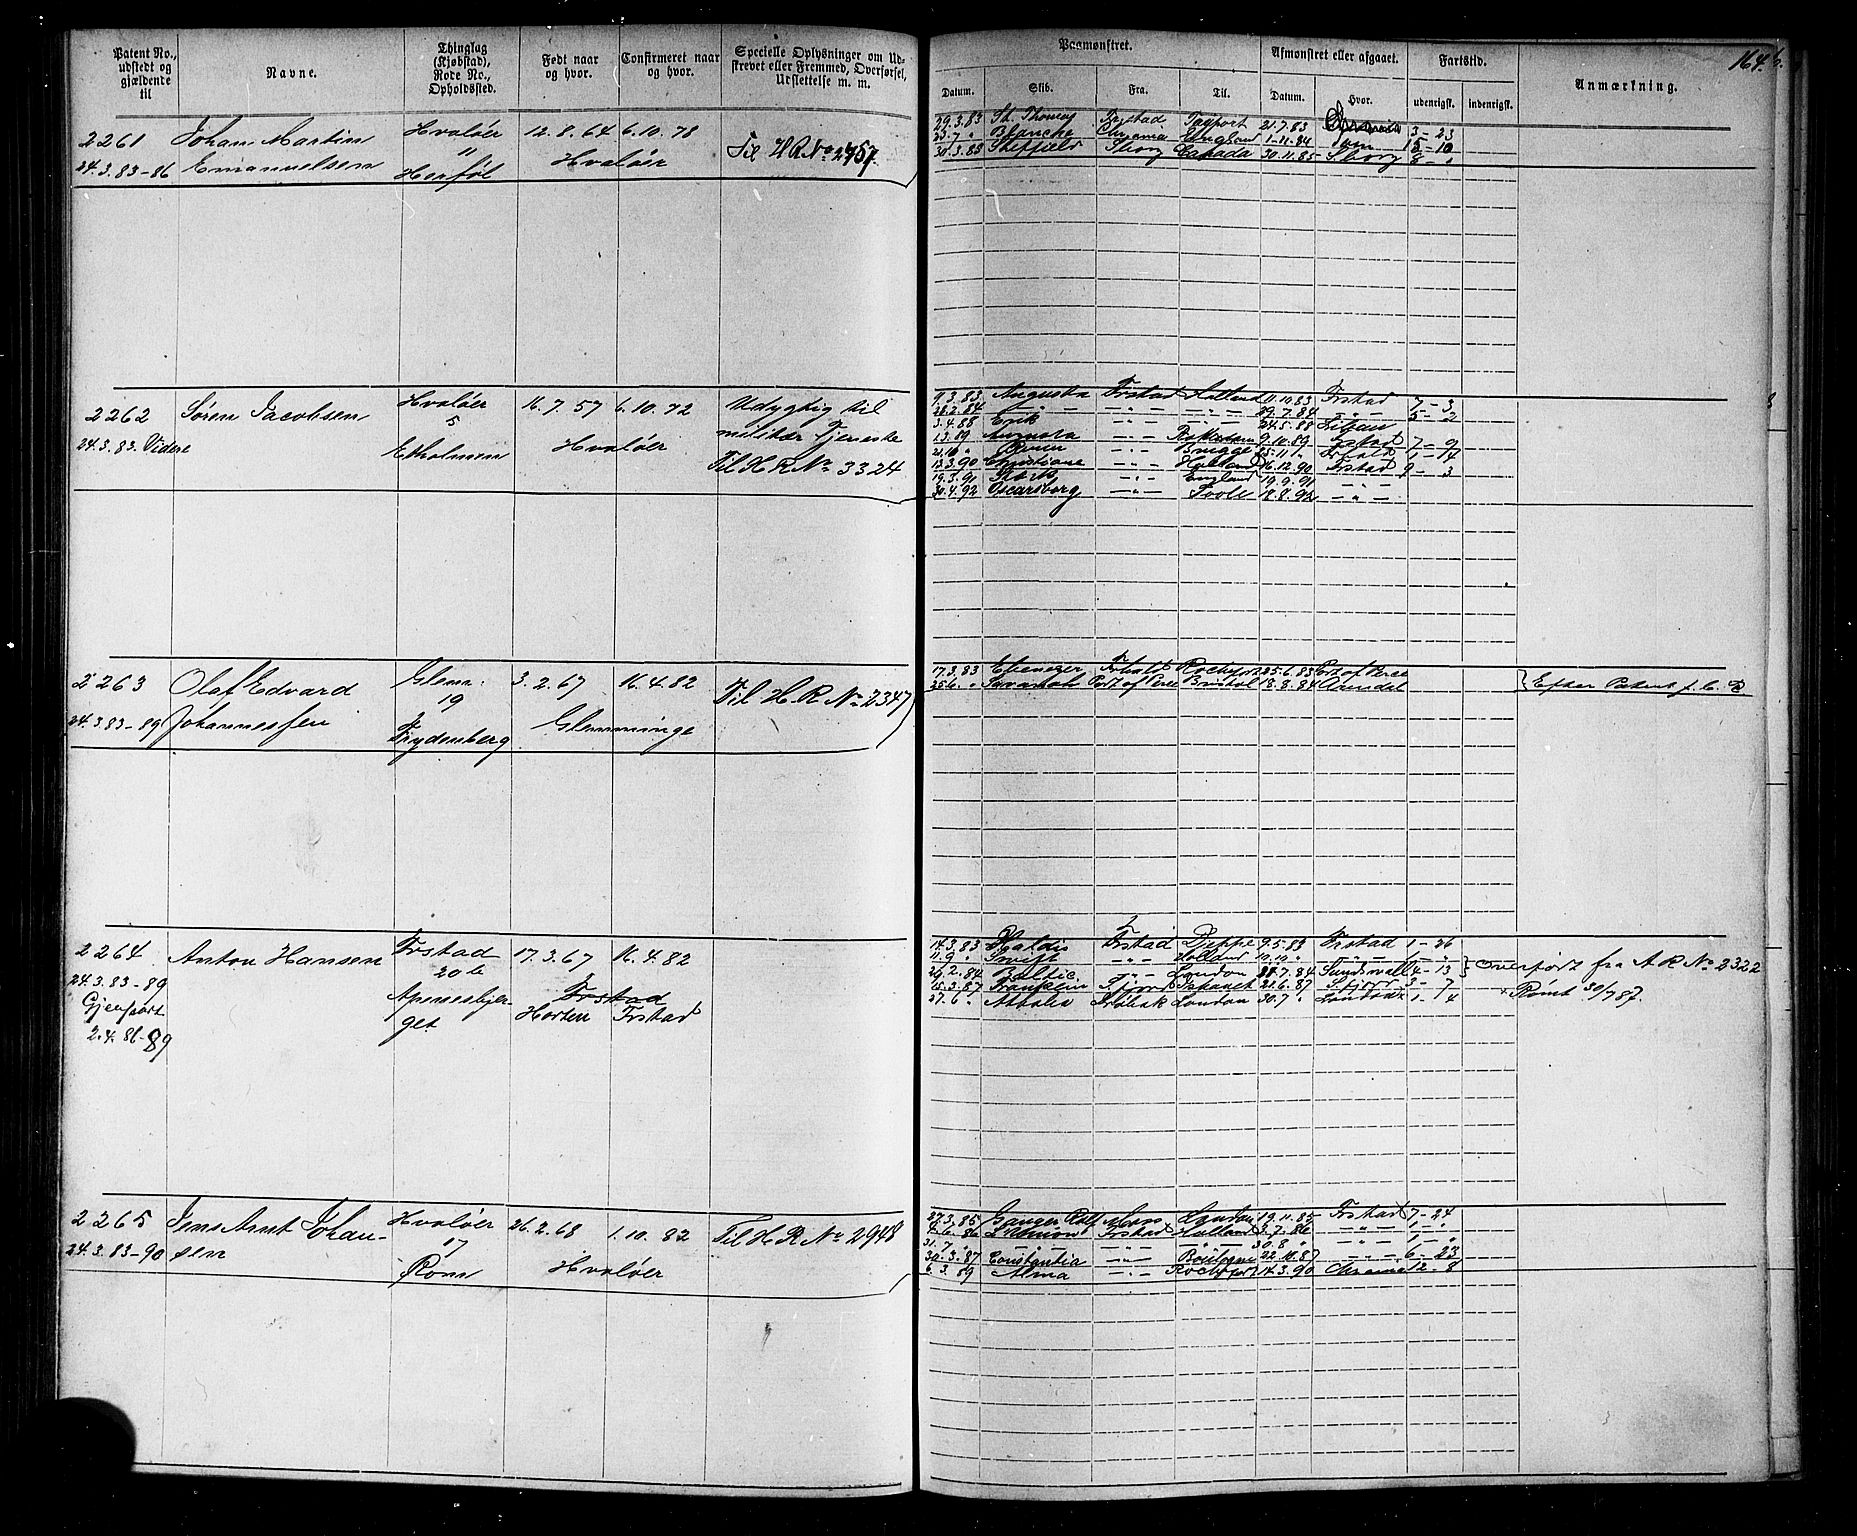 Patent No., udstedt og gjældende til
Navne.
Thinglag (Kjøbstad), Rode No., Opholdssted.
Født naar og hvor.
Confirmeret naar og hvor.
Specielle Oplysninger om Udskrevet eller Fremmed, Overførsel, Udslettelse m. m.
Paamønstret.
Afmønstret eller afgaaet.
Fartstid.
Anmærkning.
164
Datum.
Skib.
Fra.
Til.
Datum.
Hvor.
udenrigsk.
indenrigsk.
2261
24.3.83-86
Johan Martin
Emanuelsen
Hvaløer
11
Herføl
12.8.64
6.10.78
Hvaløer
Til H R No 2457
29.3.83 St. Thomas Frstad 21.7.83 3-23
25.7 " Blanche Chrania England 1.11.84 15-10
30.3.85 Sheffield Sborg Canada 30.11.85 Sborg 8-"
2262
24.3.83 Videre
Søren Jacobsen
Hvaløer
5
Ekholmen
16.7.57
6.10.72
Hvaløer
Udygtig til
militær Tjeneste
Til H R No 3324
1.3.83 Augusta Frstad Holland 11.10.83 Frstad 7-3
28.2.84 -"- -"- -"- 29.7.84 -"- 5-2
3.4.88 Erik -"- 24.5.88
-"- 9.10.89 7-9
-"- Brügge 1-14
13.3.90 Christiane -"- Holland 16.12.90 Frstad 9-3
19.3.91 -"- England 19.9.91 -"-
30.4.92 Oscarsborg -"- Poole 18.8.92 -"-
2263
24.3.83-89
Olaf Edvard
Johannessen
Glem.
19
Frydenberg
3.2.67
16.4.82
Glemminge
Til H.R No 2347
17.3.83 Ebenezer Frhald Rochefort 25.6.83 Port of Perce
25.6. " Savanah Port of Perce Bristol 18.8.84 Arendal
Efter Patent
2264
24.3.83-89
Gjenpart
2.4.86-89
Anton Hansen
Frstad
20b
Apenesbjerget
17.3.67
16.4.82
Frstad
Horten Frstad
14.3.83 Frstad Dieppe 9.5.83 Frstad 1-26
11.9 " Swift -"- Holland 10.10 " -"-
29.2.84 Baltic -"- London 7.84 Sundswall 4-13
15.3.87 Franklin 21.6.87 3-7
27.6. " Athalia Drøbak London 30.7 " London 1-4
Overført fra A R No 2322
Rømt 30/7 87.
2265
24.3.83-90
Jens Arnt Johansen
Hvaløer
17
Røm
26.2.68
1.10.82
Hvaløer
Til H R No 2948
27.3.85 Ganger Rolf Moss London 19.11.85 Frstad 7-24
6.86 Frstad Holland 3.7.86 -"- 1-"
31.7 -"- 30.8 " -"- 1-"
30.3.87 Constantia -"- Boulogne 22.10.87 -"- 6-23
6.3.89 Alma -"- Rochefort 14.3.90 Chrania 12-8